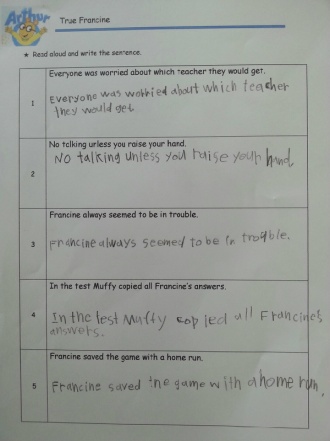 Arthur
True Francine
★ Read aloud and write the sentence.
Everyone was worried about which teacher they would get.
1
Everyone was worried about which teacher
they would get
No talking unless you raise your hand.
2
No talking unless you raise your hand.
Francine always seemed to be in trouble.
3
Francine always seemed to be in trouble.
In the test Muffy copied all Francine's answers.
4
In the test Muffy copied all Francine's
answers.
Francine saved the game with a home run.
5
Francine saved the game with a home run.